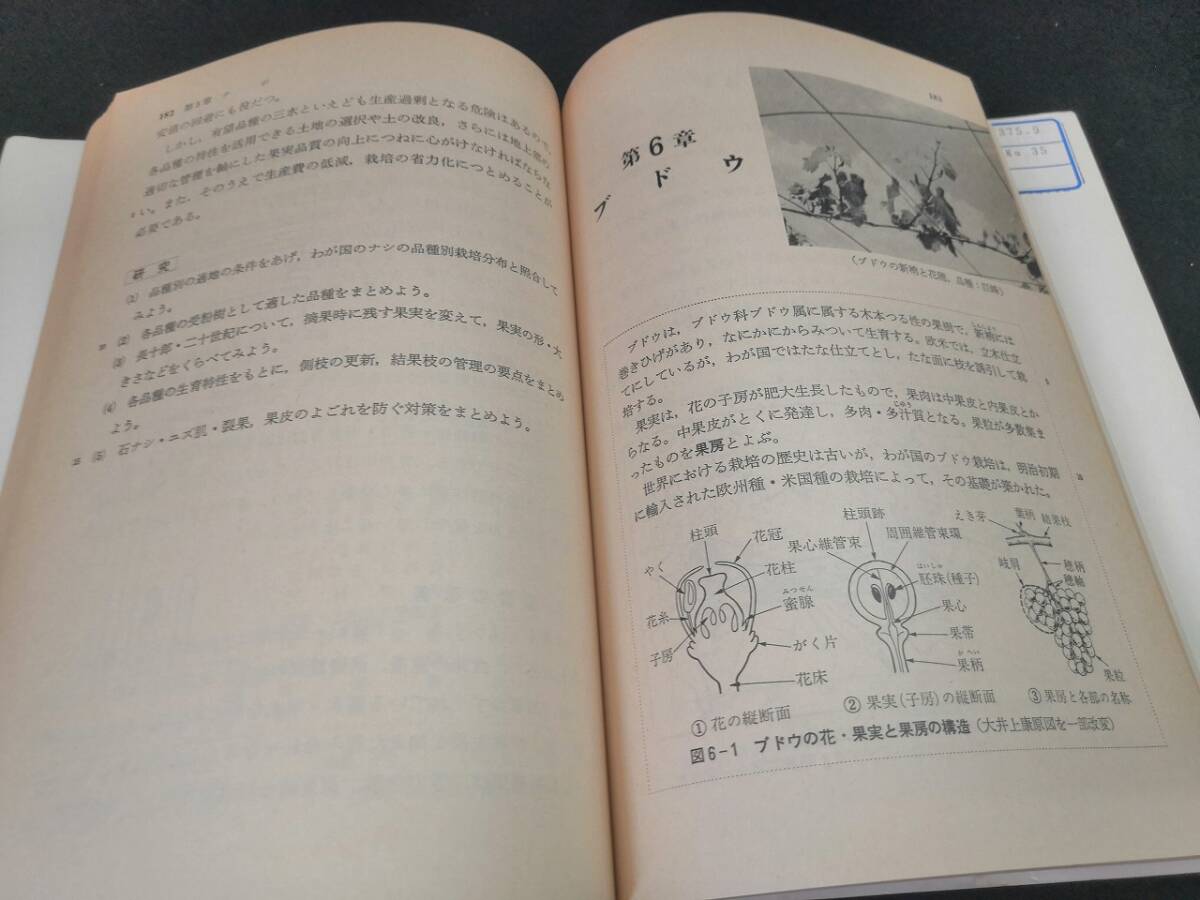 182 第5章 ナ シ
安値の回避にも役だつ。
しかし，有望品種の三水といえども生産過剰となる危険はあるので，
各品種の特性を活用できる土地の選択や土の改良，さらには地上部の
適切な管理を軸にした果実品質の向上につねに心がけなければならな
い。また，そのうえで生産費の低減，栽培の省力化につとめることが
必要である。
研 究
(1) 品種別の適地の条件をあげ，わが国のナシの品種別栽培分布と照合して
みよう。
(2) 各品種の受粉樹として適した品種をまとめよう。
(3) 長十郎・二十世紀について，摘果時に残す果実を変えて，果実の形・大
きさなどをくらべてみよう。
(4) 各品種の生育特性をもとに，側枝の更新，結果枝の管理の要点をまとめ
よう。
(5) 石ナシ・ユズ肌・裂果，果皮のよごれを防ぐ対策をまとめよう。
183
第6章
ブ ド ウ
(ブドウの新梢と花穂，品種：巨峰)
ブドウは，ブドウ科ブドウ属に属する木本つる性の果樹で，新梢には
巻きひげがあり，なにかにからみついて生育する。欧米では，立木仕立
てにしているが，わが国ではたな仕立てとし，たな面に枝を誘引して栽
培する。
果実は，花の子房が肥大生長したもので，果肉は中果皮と内果皮とか
らなる。中果皮がとくに発達し，多肉・多汁質となる。果粒が多数集ま
ったものを果房とよぶ。
世界における栽培の歴史は古いが，わが国のブドウ栽培は，明治初期
に輸入された欧州種・米国種の栽培によって，その基礎が築かれた。
柱頭
花冠
やく
花柱
みつせん
蜜腺
花糸
子房
がく片
花床
①花の縦断面
柱頭跡
果心維管束
周囲維管束環
はいしゅ
胚珠(種子)
果心
果帯
かへい
果柄
②果実(子房)の縦断面
えき芽
葉柄
結果枝
岐肩
穂柄
穂軸
果粒
③果房と各部の名称
図6-1 ブドウの花・果実と果房の構造(大井上康原図を一部改変)
375.9
No 35